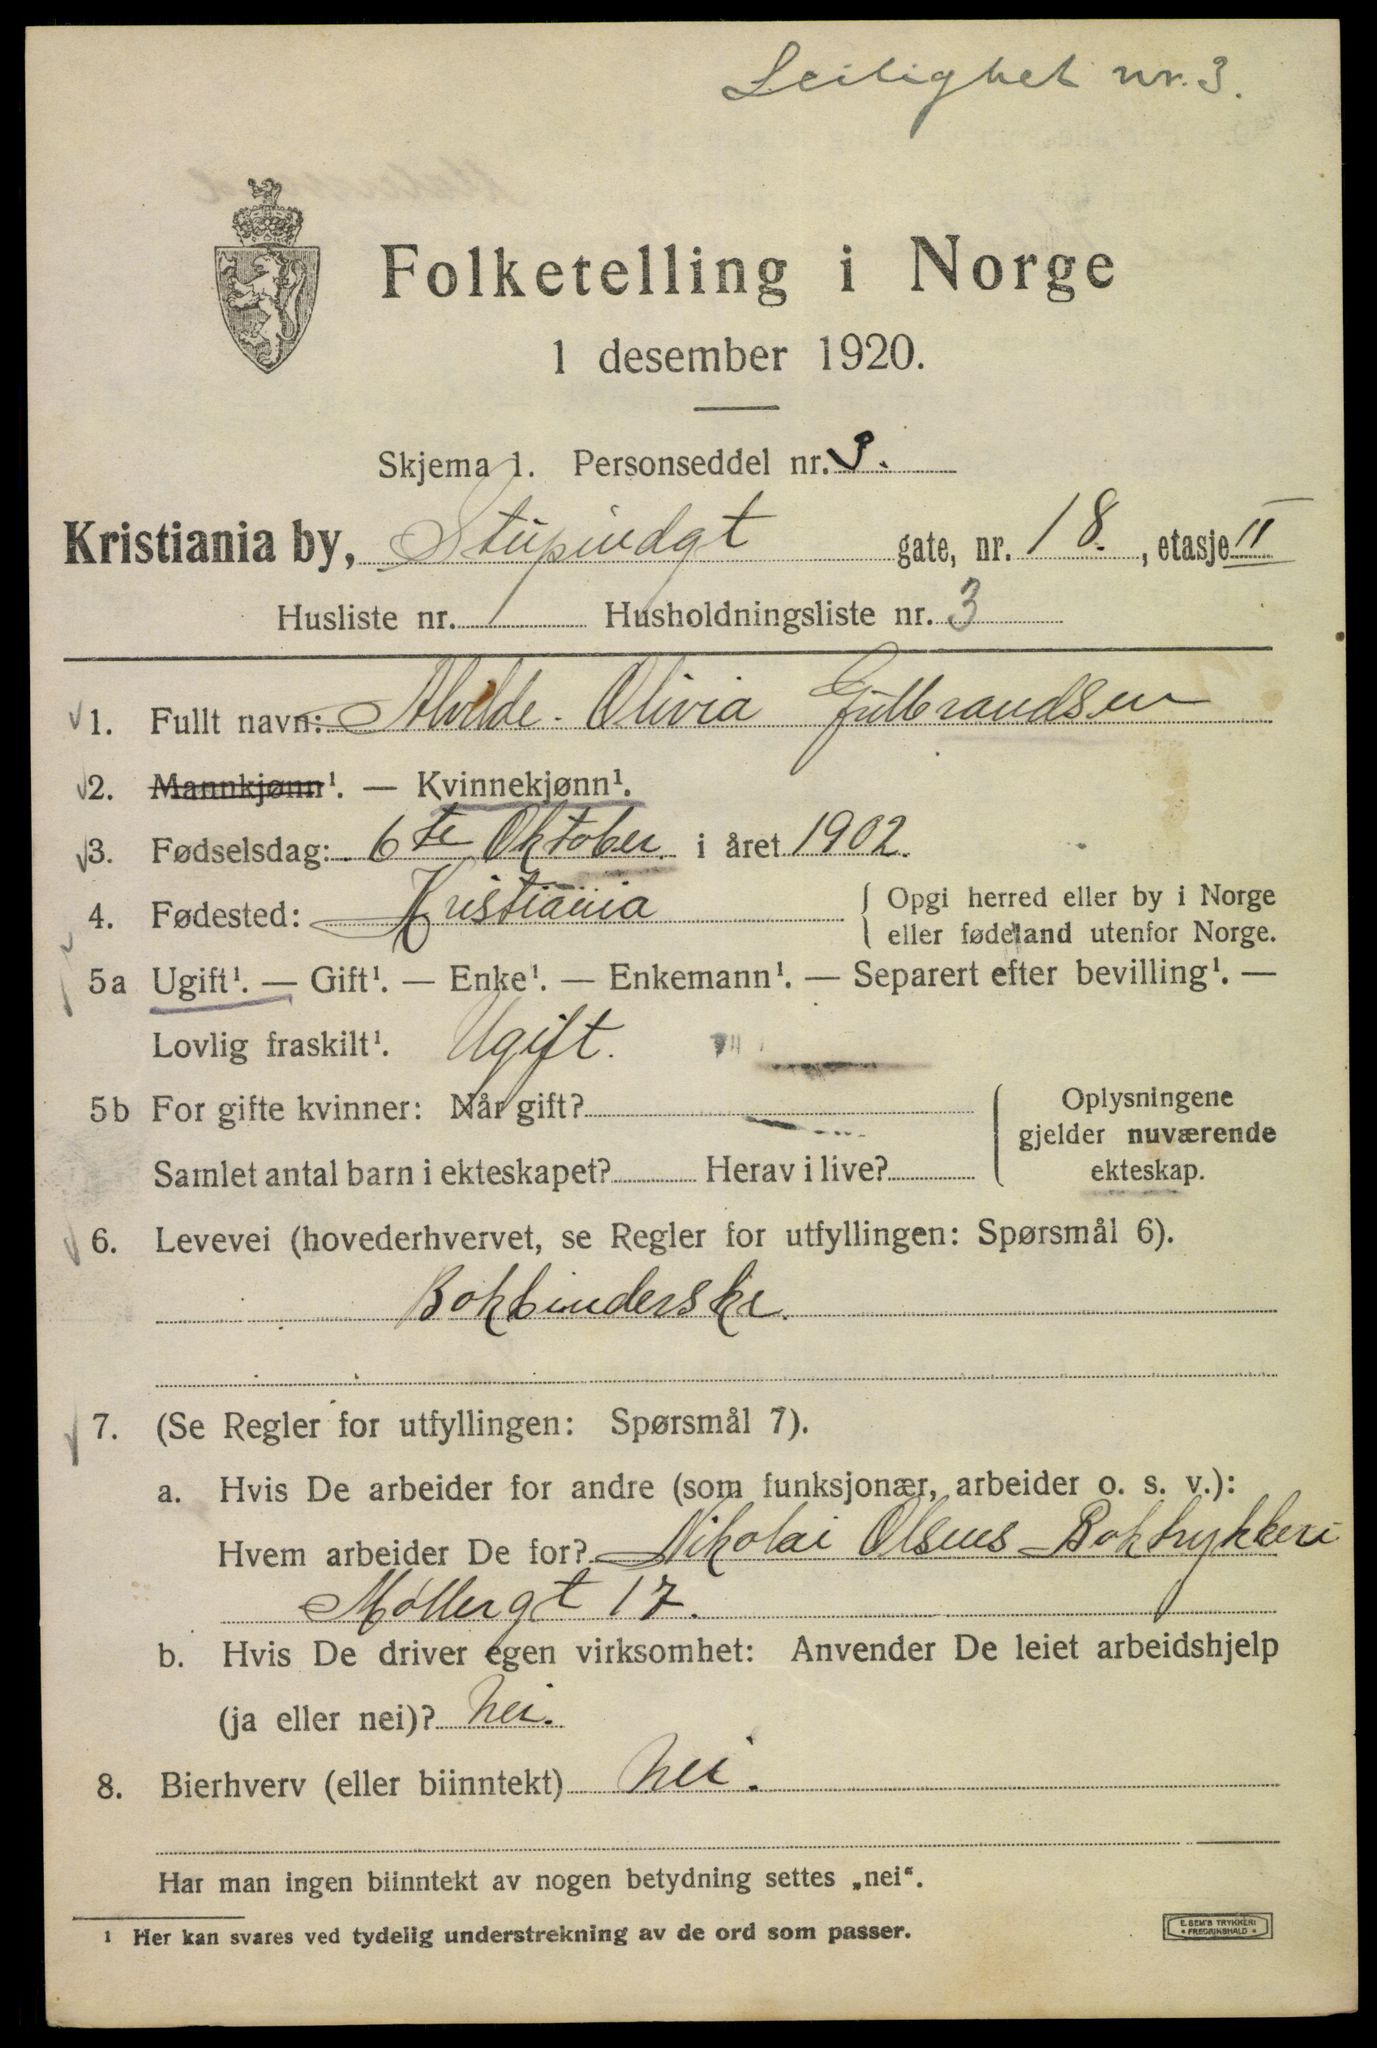 Leilighet nr. 3.
Folketelling i Norge
1 desember 1920.
Skjema 1. Personseddel nr. 3.
Kristiania by, Stupindgt gate, nr. 18., etasje II
Husliste nr. 1 Husholdningsliste nr. 3
1. Fullt navn: Alvilde Olivia Gulbrandsen
2. Mannkjønn¹. — Kvinnekjønn¹.
3. Fødselsdag: 6te Oktober i året 1902.
4. Fødested: Kristiania { Opgi herred eller by i Norge
eller fødeland utenfor Norge.
5a Ugift¹. — Gift¹. — Enke¹. — Enkemann¹. — Separert efter bevilling¹. —
Lovlig fraskilt¹. Ugift.
5b For gifte kvinner: Når gift? { Oplysningene
gjelder nuværende
Samlet antal barn i ekteskapet? Herav i live? ekteskap.
6. Levevei (hovederhvervet, se Regler for utfyllingen: Spørsmål 6).
Bokbinderske.
7. (Se Regler for utfyllingen: Spørsmål 7).
a. Hvis De arbeider for andre (som funksjonær, arbeider o. s. v.):
Hvem arbeider De for? Nikolai Olsens Boktrykkeri
Møllergt 17.
b. Hvis De driver egen virksomhet: Anvender De leiet arbeidshjelp
(ja eller nei)? Nei.
8. Bierhverv (eller biinntekt) Nei.
Har man ingen biinntekt av nogen betydning settes „nei“.
¹ Her kan svares ved tydelig understrekning av de ord som passer.
E. SEM'S TRYKKERI
* FREDRIKSHALD *